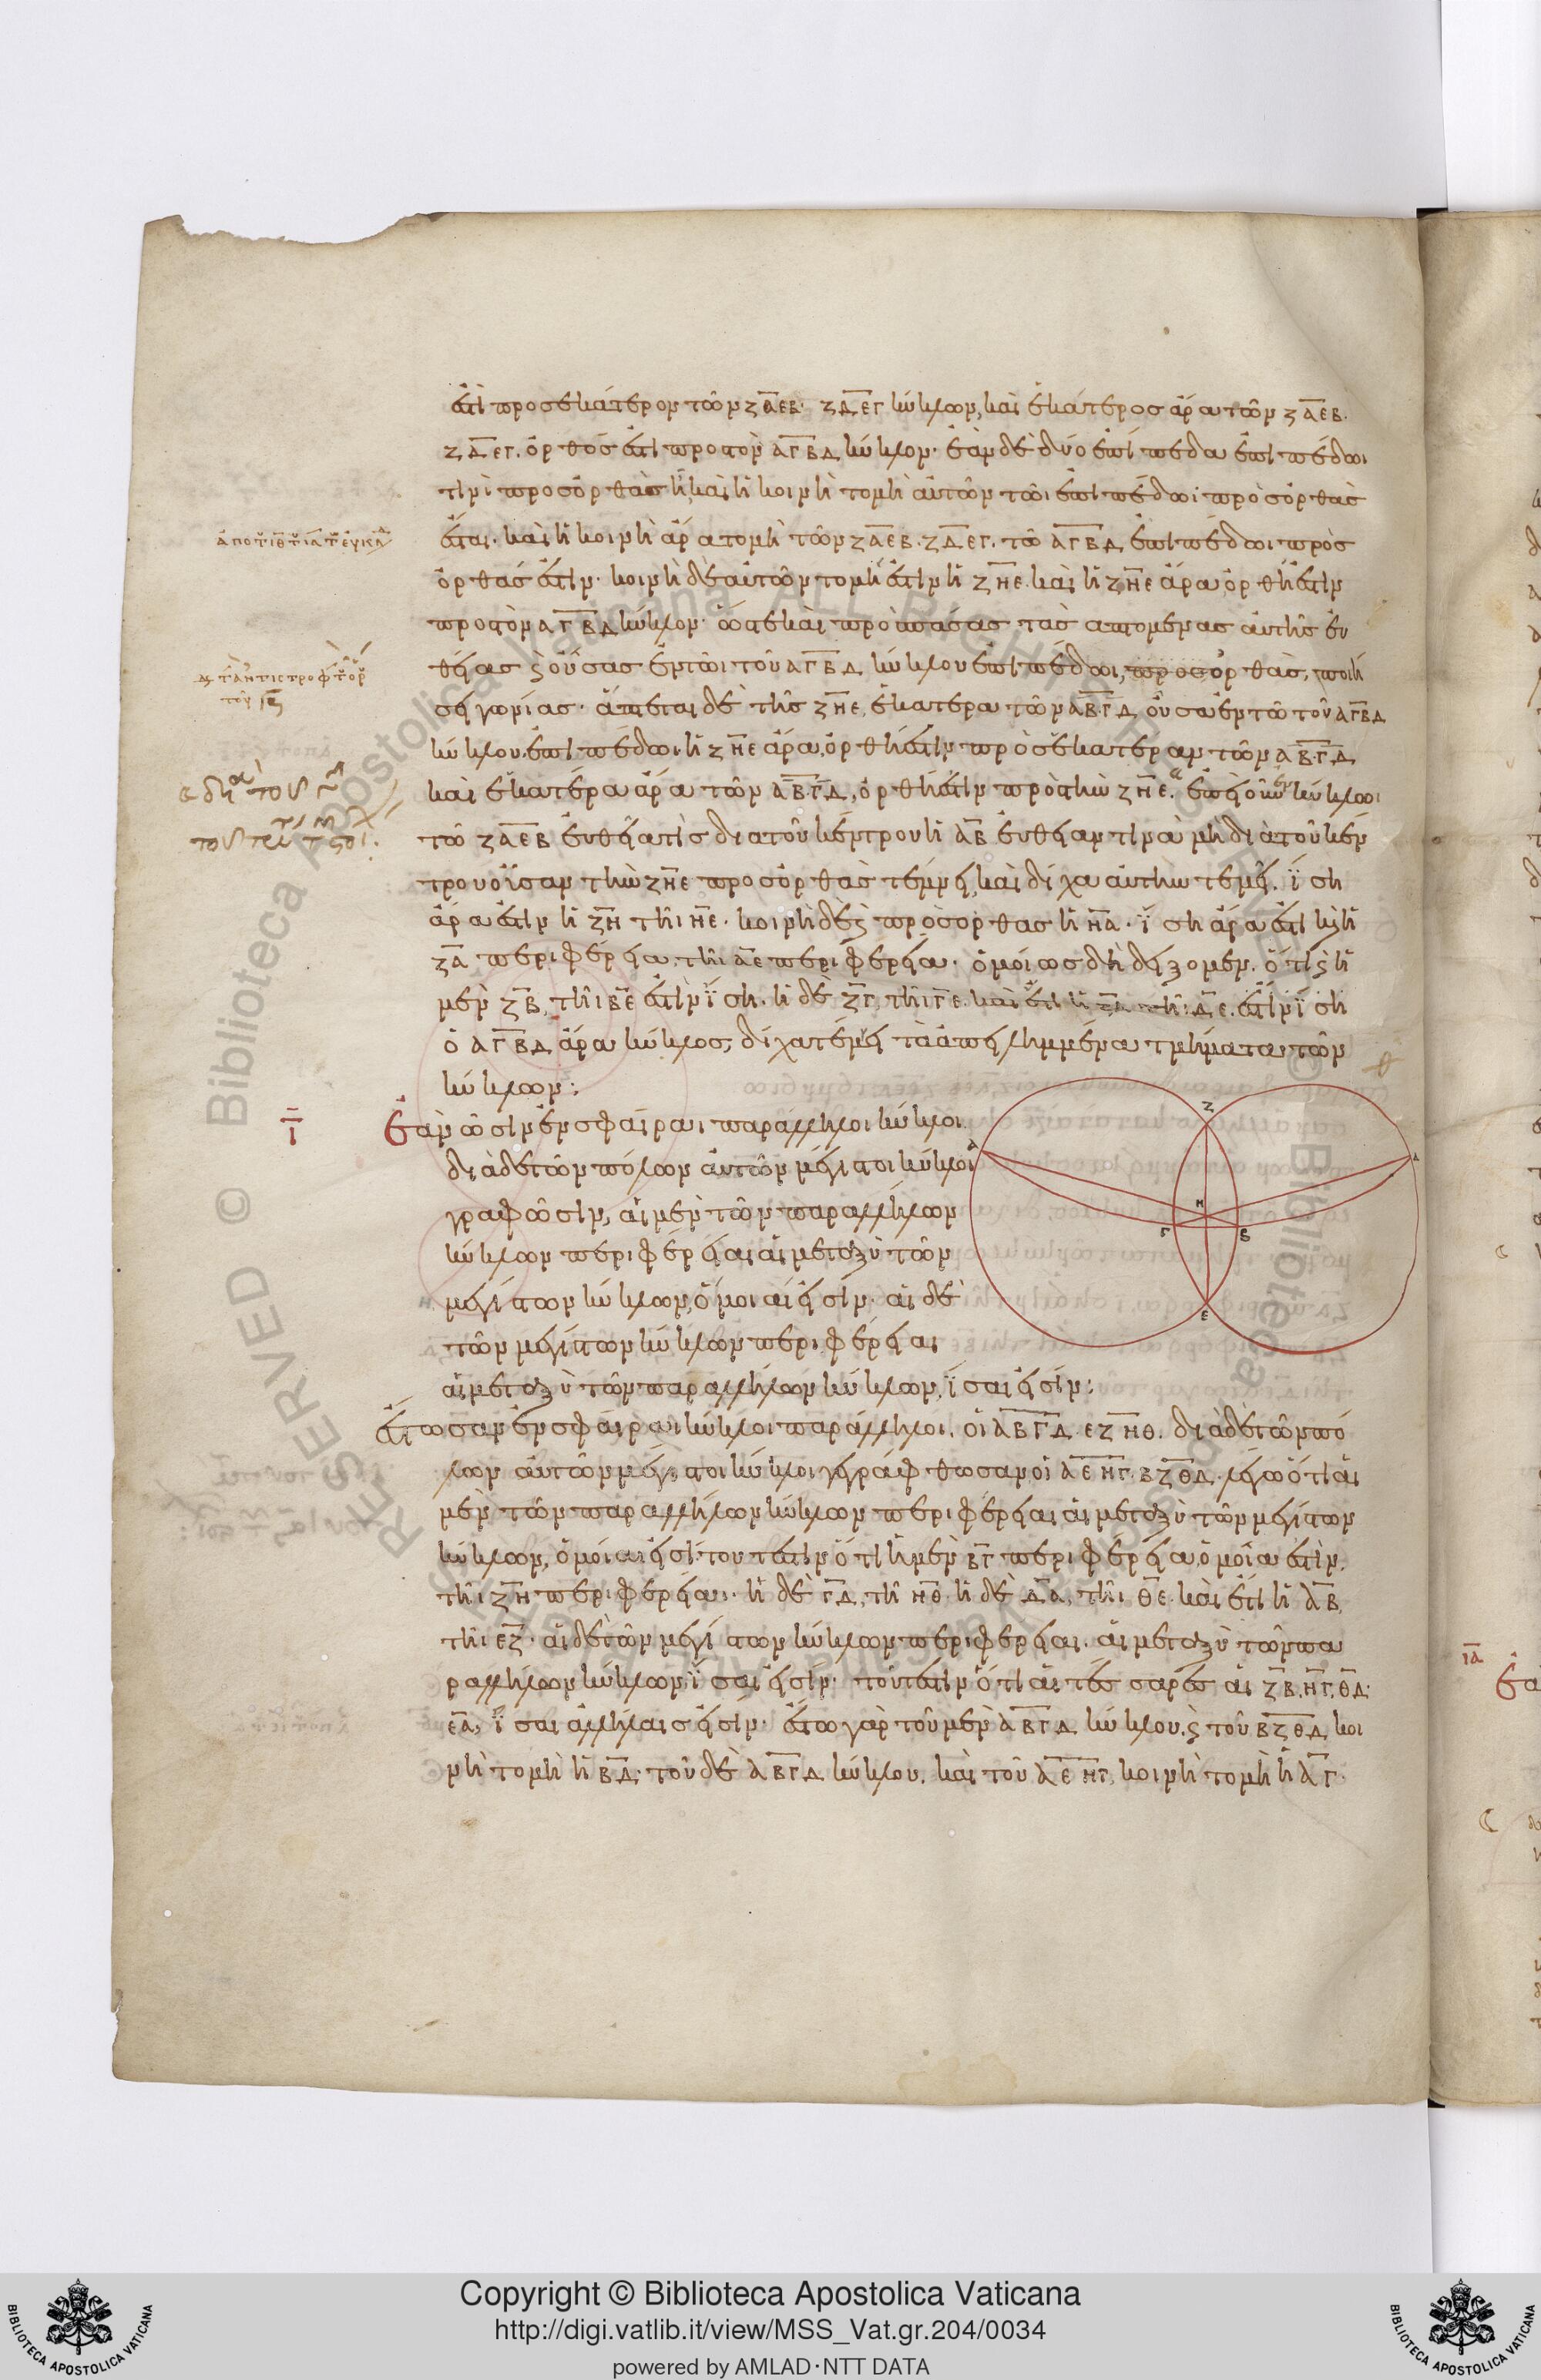 ἐστὶ πρὸς ἑκάτερον τῶν ΖΑΕΒ· ΖΔΕΓ κύκλων, καὶ ἑκάτερος ἄρα τῶν ΖΑΕΒ.
ΖΔΕΓ. ὀρθός ἐστι πρὸς τὸν ΑΓΒΔ κύκλον· ἐὰν δὲ δύο ἐπίπεδα ἐπιπέδωι
τινὶ πρὸς ὀρθὰς ἦι, καὶ ἡ κοινὴ τομὴ αὐτῶν τῶι ἐπιπέδωι πρὸς ὀρθὰς
ἔσται. καὶ ἡ κοινὴ ἄρα τομὴ τῶν ΖΑΕΒ. ΖΔΕΓ. τῶ ΑΓΒΔ ἐπιπέδωι πρὸς
ὀρθάς ἐστιν. κοινὴ δὲ αὐτῶν τομή ἐστιν ἡ ΖΗΕ. καὶ ἡ ΖΗΕ ἄρα ὀρθή ἐστιν
πρὸς τὸν ΑΓΒΔ κύκλον· ὥστε καὶ πρὸς πάσας τὰς ἁπτομένας αὐτῆς εὐ
θείας ϗ οὔσας ἐν τῶι τοῦ ΑΓΒΔ κύκλου ἐπιπέδωι, πρὸς ὀρθὰς, ποιή
σει γωνίας· ἅπτεται δὲ τῆς ΖΗΕ, ἑκατέρα τῶν ΑΒ·ΓΔ οὖσα ἐν τῶ τοῦ ΑΓΒΔ
κύκλου ἐπιπέδωι· ἡ ΖΗΕ ἄρα, ὀρθή ἐστιν πρὸς ἑκατέραν τῶν ΑΒ·ΓΔ
καὶ ἑκατέρα ἄρα τῶν ΑΒ·ΓΔ, ὀρθή ἐστιν πρὸς τὴν ΖΗΕ. ἐπεὶ οὖν ἐν κύκλωι
τῶ ΖΑΕΒ εὐθεῖα τὶς διὰ τοῦ κέντρου ἡ ΑΒ εὐθεῖαν τινὰ μὴ διὰ τοῦ κέν
τρου οὖσαν τὴν ΖΗΕ πρὸς ὀρθὰς τέμνει, καὶ δίχα αὐτὴν τεμεῖ. ἴση
ἄρα ἐστιν ἡ ΖΗ τῆι ΗΕ. κοινὴ δὲ ϗ πρὸς ὀρθὰς ἡ ΗΑ· ἴση ἄρα ἐστὶ ϗ ἡ
ΖΑ περιφέρεια, τῆι ΑΕ περιφερεία. ὁμοίως δὴ δείξομεν. ὅτι ϗ ἡ
μὲν ΖΒ, τῆι ΒΕ ἐστὶν ἴση. ἡ δὲ ΖΓ, τῆι ΓΕ. καὶ ἔτι ἡ ΖΔ τῆι ΔΕ. ἐστὶν ἴση
ὁ ΑΓΒΔ ἄρα κύκλος, δίχα τεμεῖ τὰ ἀπειλημμένα τμήματα τῶν
κύκλων:
Ι
Ἐὰν ὦσιν ἐν σφαίραι παράλληλοι κύκλοι.
διὰ δὲ τῶν πόλων αὐτῶν μέγιστοι κύκλοι
γραφῶσιν, αἱ μὲν τῶν παραλλήλων
κύκλων περιφέρειαι αἱ μεταξὺ τῶν
μεγίστων κύκλων, ὅμοιαι εἰσίν· αἱ δὲ
τῶν μεγίστων κύκλων περιφέρειαι
αἱ μεταξὺ τῶν παραλλήλων κύκλων, ἴσαι εἰσίν:
Ἔστωσαν ἐν σφαίραι κύκλοι παράλληλοι. οἱ ΑΒΓΔ. ΕΖΗΘ. διὰ δὲ τῶν πό
λων αὐτῶν μέγιστοι κύκλοι γεγράφθωσαν οἱ ΑΕΗΓ· ΒΖΘΔ. λέγω ὅτι αἱ
μὲν τῶν παραλλήλων κύκλων περιφέρειαι αἱ μεταξὺ τῶν μεγίστων
κύκλων, ὅμοιαι εἰσί· τουτέστιν ὅτι ἡ μὲν ΒΓ περιφέρεια, ὁμοία ἐστὶν.
τῆι ΖΗ περιφερείαι· ἡ δὲ ΓΔ, τῆ ΗΘ. ἡ δὲ ΔΑ, τῆι ΘΕ. καὶ ἔτι ἡ ΑΒ,
τῆι ΕΖ. αἱ δὲ τῶν μεγίστων κύκλων περιφέρειαι. αἱ μεταξὺ τῶν πα
ραλλήλων κύκλων, ἴσαι εἰσίν. τουτέστιν ὅτι αἱ τέσσαρες αἱ ΖΒ, ΗΓ, ΘΔ·
ΕΑ, ἴσαι ἀλλήλαις εἰσίν. ἔστω γὰρ τοῦ μὲν ΑΒΓΔ κύκλου, ϗ τοῦ ΒΖΘΔ κοι
νὴ τομὴ ἡ ΒΔ· τοῦ δὲ ΑΒΓΔ κύκλου. καὶ τοῦ ΑΕΗΓ, κοινὴ τομὴ ἡ ΑΓ.
Ζ
Α
Δ
Η
Γ
Β
Ε
ΙΑ
Copyright © Biblioteca Apostolica Vaticana
http://digi.vatlib.it/view/MSS_Vat.gr.204/0034
powered by AMLAD·NTT DATA
BIBLIOTECA APOSTOLICA VATICANA
BIBLIOTECA APOSTOLICA VATICANA